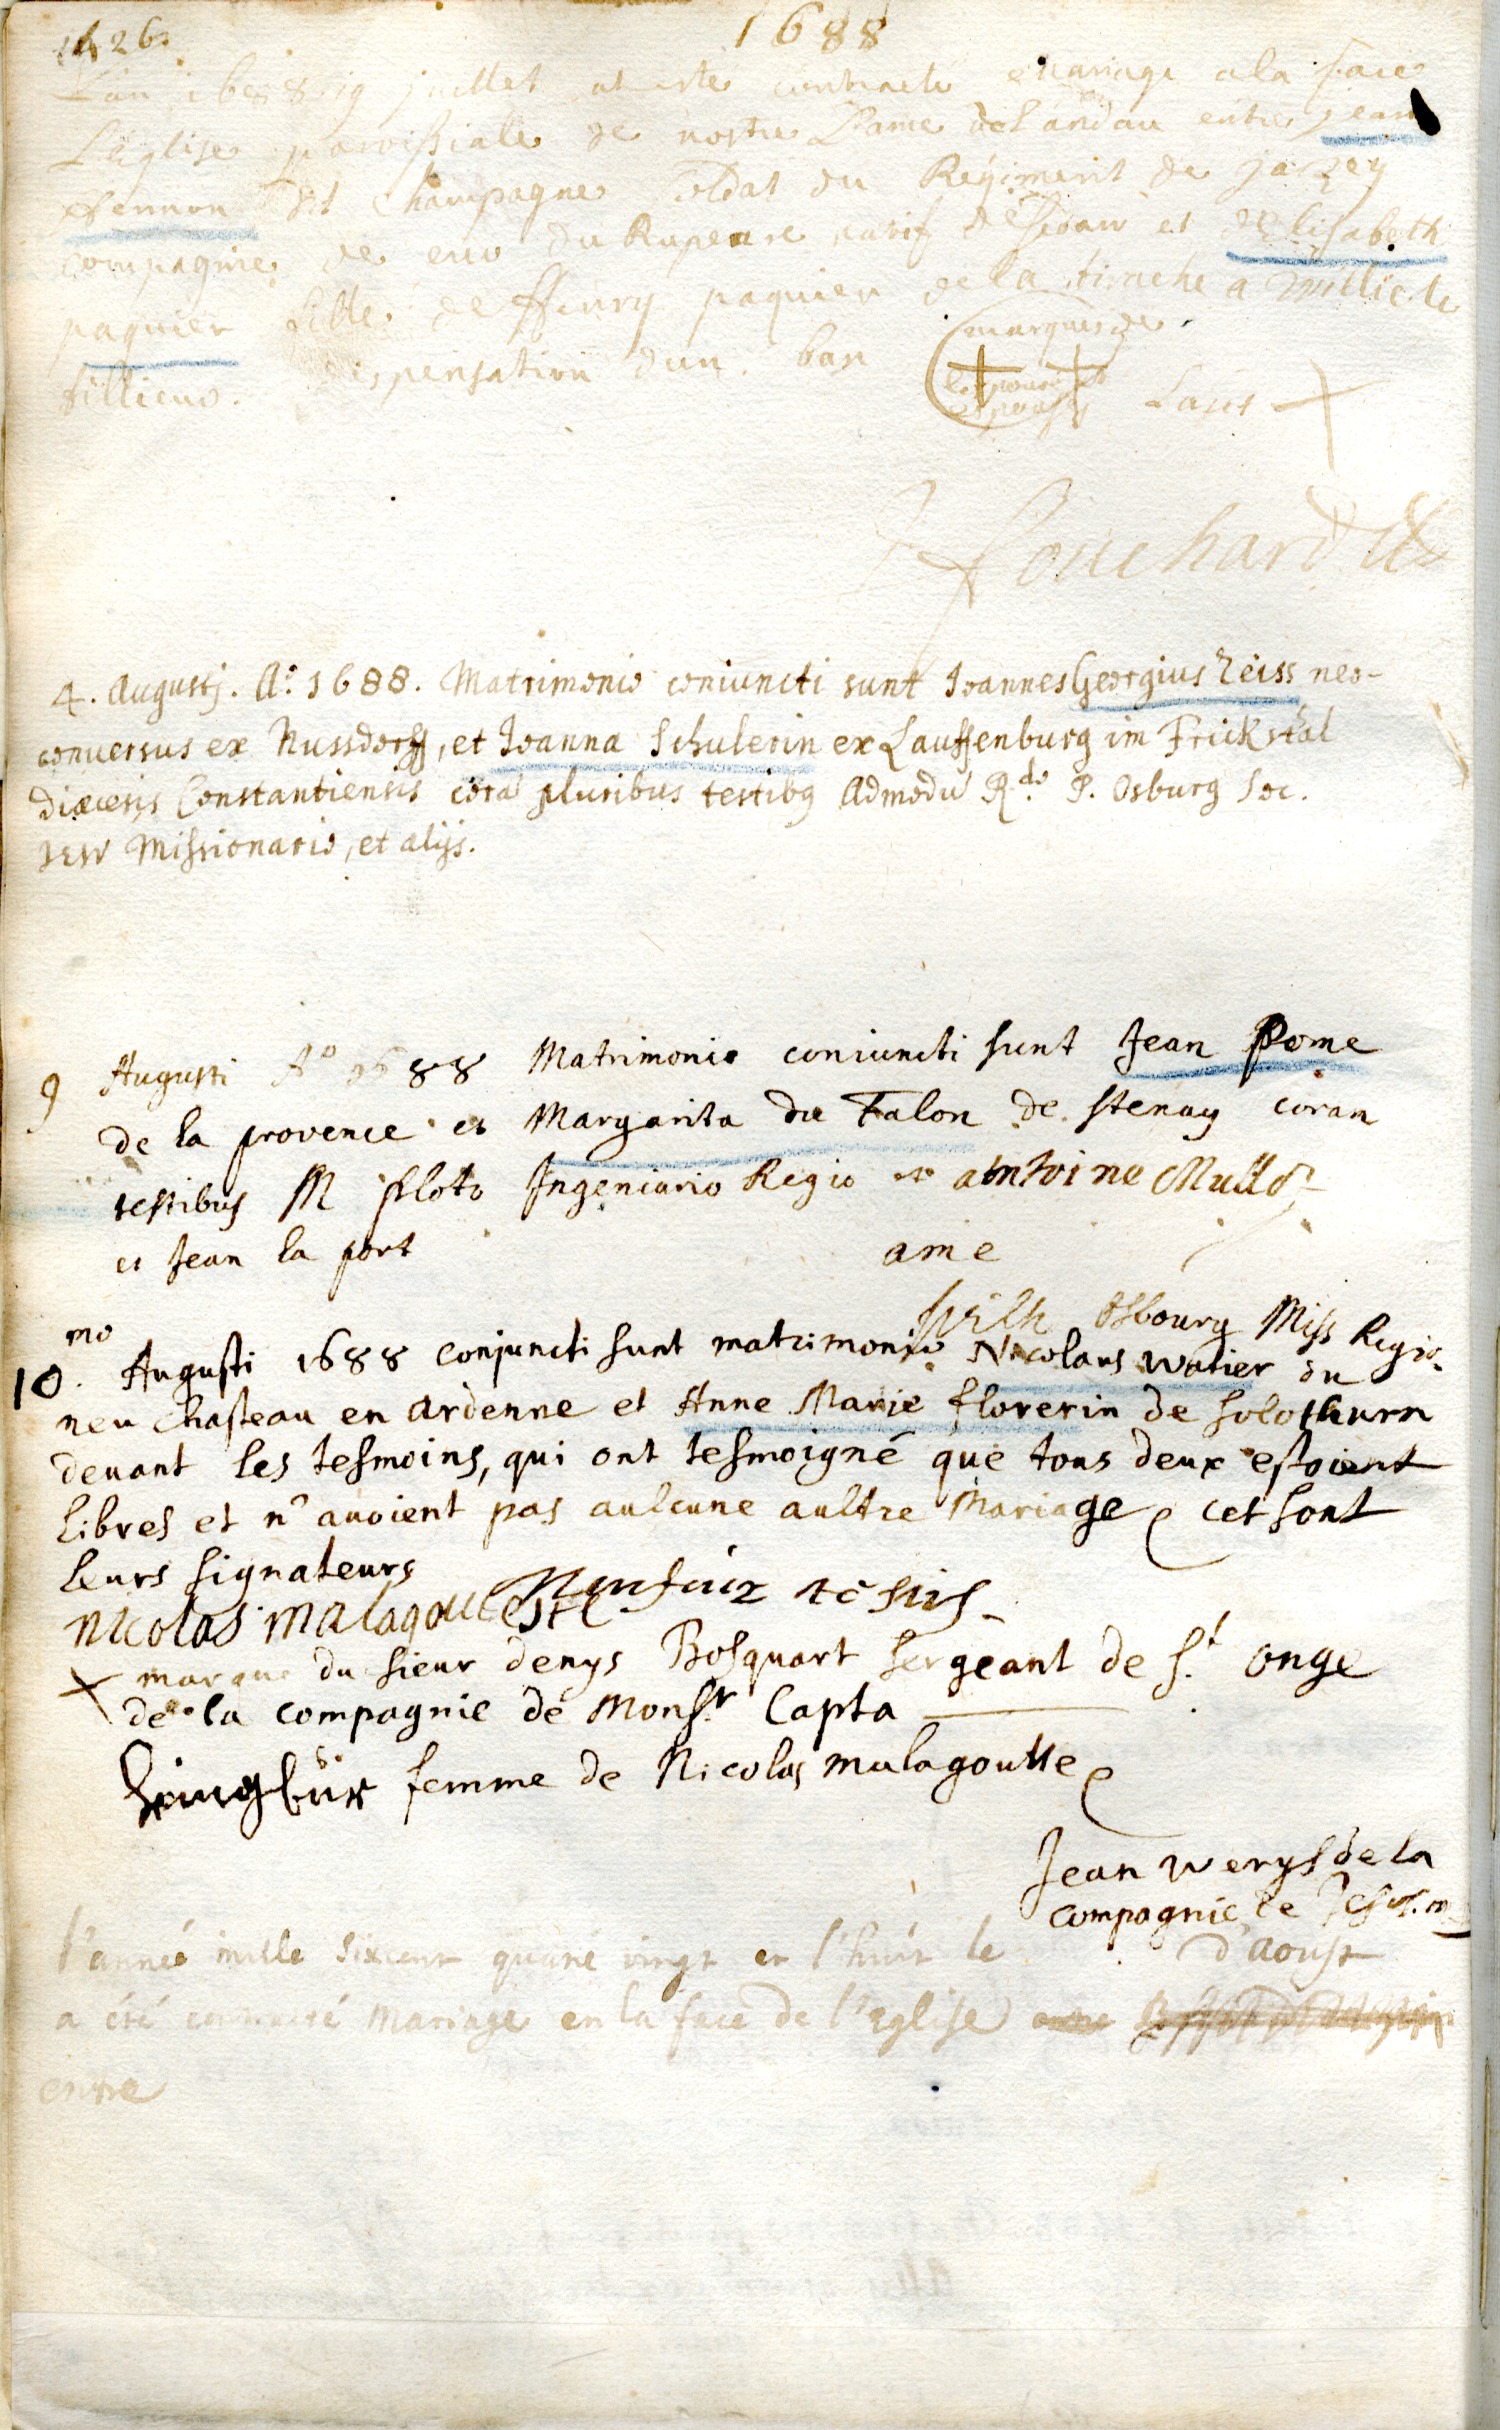 1426.
1688
L'an 1688 19 juillet at este contracté mariage a la face
L'eglise paroissiale de nostre Dame de Landau entre jean
dit Champagne soldat du Regiment de jarzey
compagnie de du natif de et delisabeth
paquier fille de Henry paquier de la
dispensation dun ban
marques de
lespoux et
espouse
Louchard
4. Augustj. Ao. 1688. Matrimonio coniuncti sunt Joannes Georgius Zeiss neo-
conuersus ex Nussdorff, et Joanna Schulerin ex Lauffenburg im Frickstal
diœcesis Constantiensis corã pluribus testibq Admodũ R.do P. Osburg Soc.
JESV Missionario, et alijs.
9 Augusti Ao 1688 Matrimonio coniuncti sunt Jean Pome
de la provence et Margarita du Falon de stenay coram
testibus M ploto Ingeniario Regio et antoine Mullo
et Jean la port
ame
Wilh Osbourg Miss Regio.
10.mo Augusti 1688 conjuncti sunt matrimonio Nicolaus Watier du
neu Chasteau en ardenne et Anne Marie florerin de solothurn
deuant les tesmoins, qui ont tesmoigné que tous deux estoient
libres et n'auoient pas aulcune aultre Mariage cet sont
leurs signateurs
nicolas malagoutte testis
marque du sieur denys Bosquart sergeant de St. onge
de la compagnie de Monsr. Capta
femme de Nicolas malagoutte
Jean werys de la
compagnie de Jesus. m
l'année mille sixcent quatre vingt et l'huit le d'aoust
a été contracté Mariage en la face de l'Eglise
entre